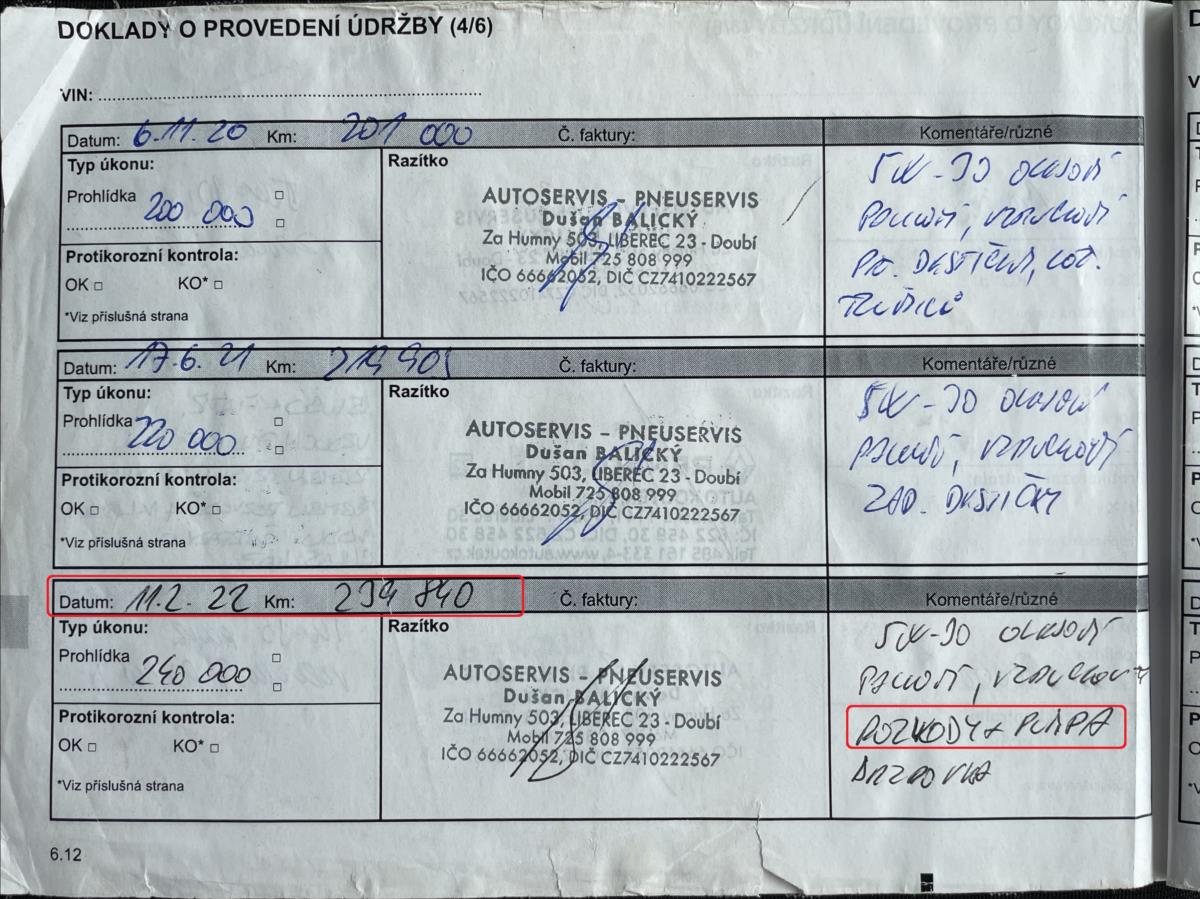 DOKLADY O PROVEDENÍ ÚDRŽBY (4/6)
VIN:
Datum: 6.11.20 Km: 201 000 Č. faktury: Komentáře/různé
Typ úkonu: Razítko
Prohlídka 200 000
AUTOSERVIS - PNEUSERVIS
Dušan BALICKÝ
Za Humny 503, LIBEREC 23 - Doubí
Mobil 725 808 999
IČO 66662052, DIČ CZ7410222567
Protikorozní kontrola:
OK KO*
*Viz příslušná strana
5W-30 OLEJOVÝ
PALIVOVÝ, VZDUCHOVÝ
PŘ. DESTIČKY, KOT.
Datum: 17.6.21 Km: Č. faktury: Komentáře/různé
Typ úkonu: Razítko
Prohlídka 220 000
AUTOSERVIS - PNEUSERVIS
Dušan BALICKÝ
Za Humny 503, LIBEREC 23 - Doubí
Mobil 725 808 999
IČO 66662052, DIČ CZ7410222567
Protikorozní kontrola:
OK KO*
*Viz příslušná strana
5W-30 OLEJOVÝ
PALIVOVÝ, VZDUCHOVÝ
ZAD. DESTIČKY
Datum: 11.2.22 Km: 239 840 Č. faktury: Komentáře/různé
Typ úkonu: Razítko
Prohlídka 240 000
AUTOSERVIS - PNEUSERVIS
Dušan BALICKÝ
Za Humny 503, LIBEREC 23 - Doubí
Mobil 725 808 999
IČO 66662052, DIČ CZ7410222567
Protikorozní kontrola:
OK KO*
*Viz příslušná strana
5W-30 OLEJOVÝ
PALIVOVÝ, VZDUCHOVÝ
ROZVODY + PUMPA
6.12